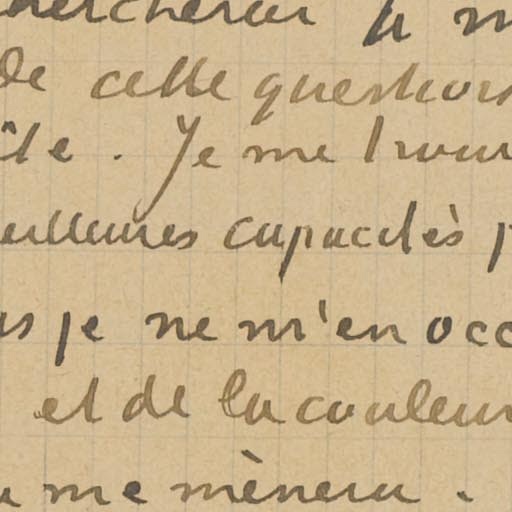 chercherai
de cette question
. Je me trouv
eilleures capacités p
as je ne m'en occ
et de la couleur
me mènera .